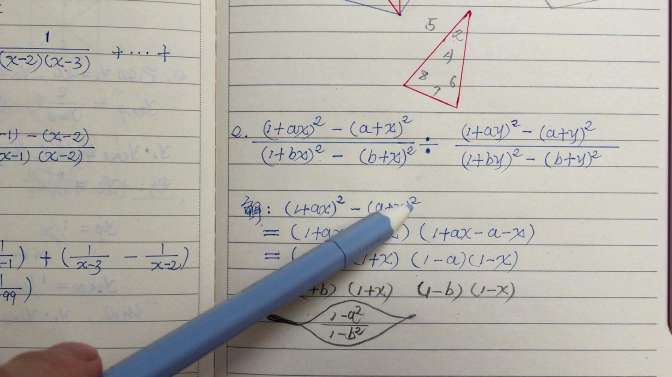 1
(x-2)(x-3) + ... +
-1) - (x-2)
x-1) (x-2)
-1) + (1/(x-3) - 1/(x-2))
99)
5
2
4
8
6
7
2. ((1+ax)² - (a+x)²)/((1+bx)² - (b+x)²) ÷ ((1+ay)² - (a+y)²)/((1+by)² - (b+y)²)
解: (1+ax)² - (a+x)²
= (1+ax ) (1+ax-a-x)
= ( 1+x) (1-a)(1-x)
+b) (1+x) (1-b) (1-x)
1-a²
1-b²